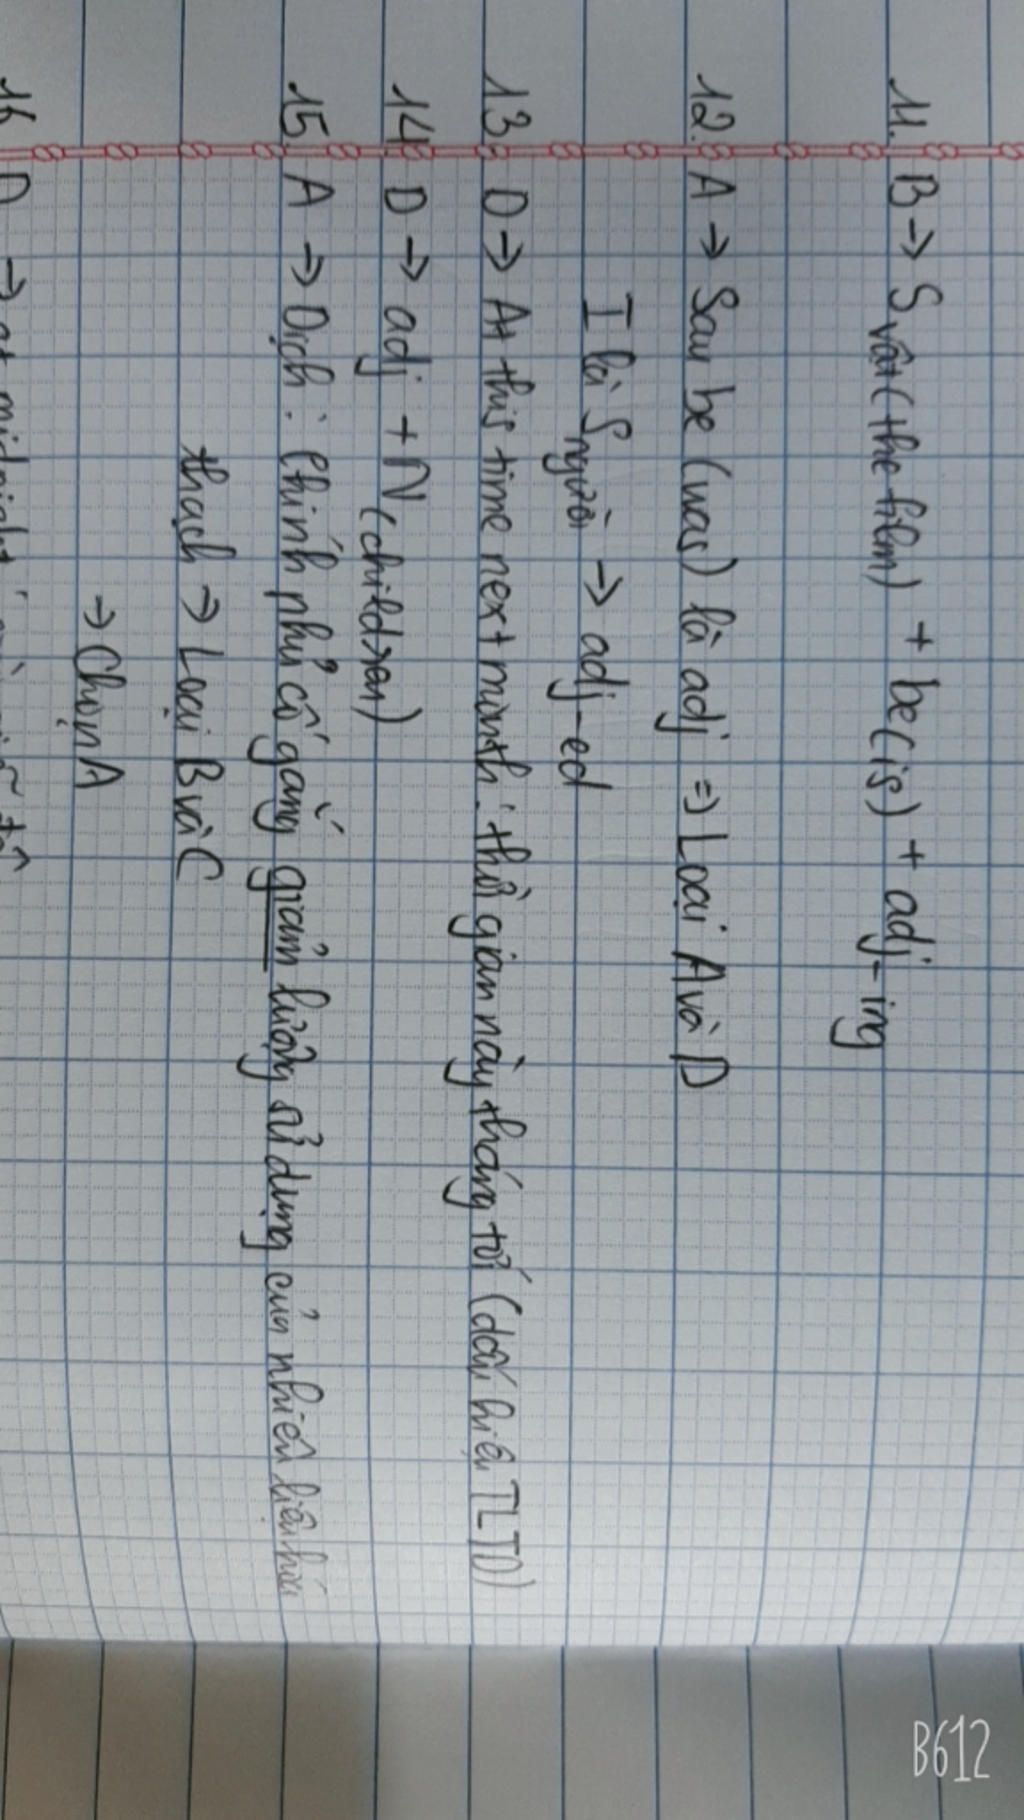 11. B → S vật (the film) + be (is) + adj-ing
12. A → Sau be (was) là adj => Loại A và D
I là S người → adj-ed
13. D → At this time next month: thời gian này tháng tới (dấu hiệu TLTD)
14. D → adj + N (children)
15. A → Dịch: Chính phủ cố gắng giảm lượng sử dụng của nhiên liệu hóa
thạch → Loại B và C
→ Chọn A
16 D → at midnight
B612